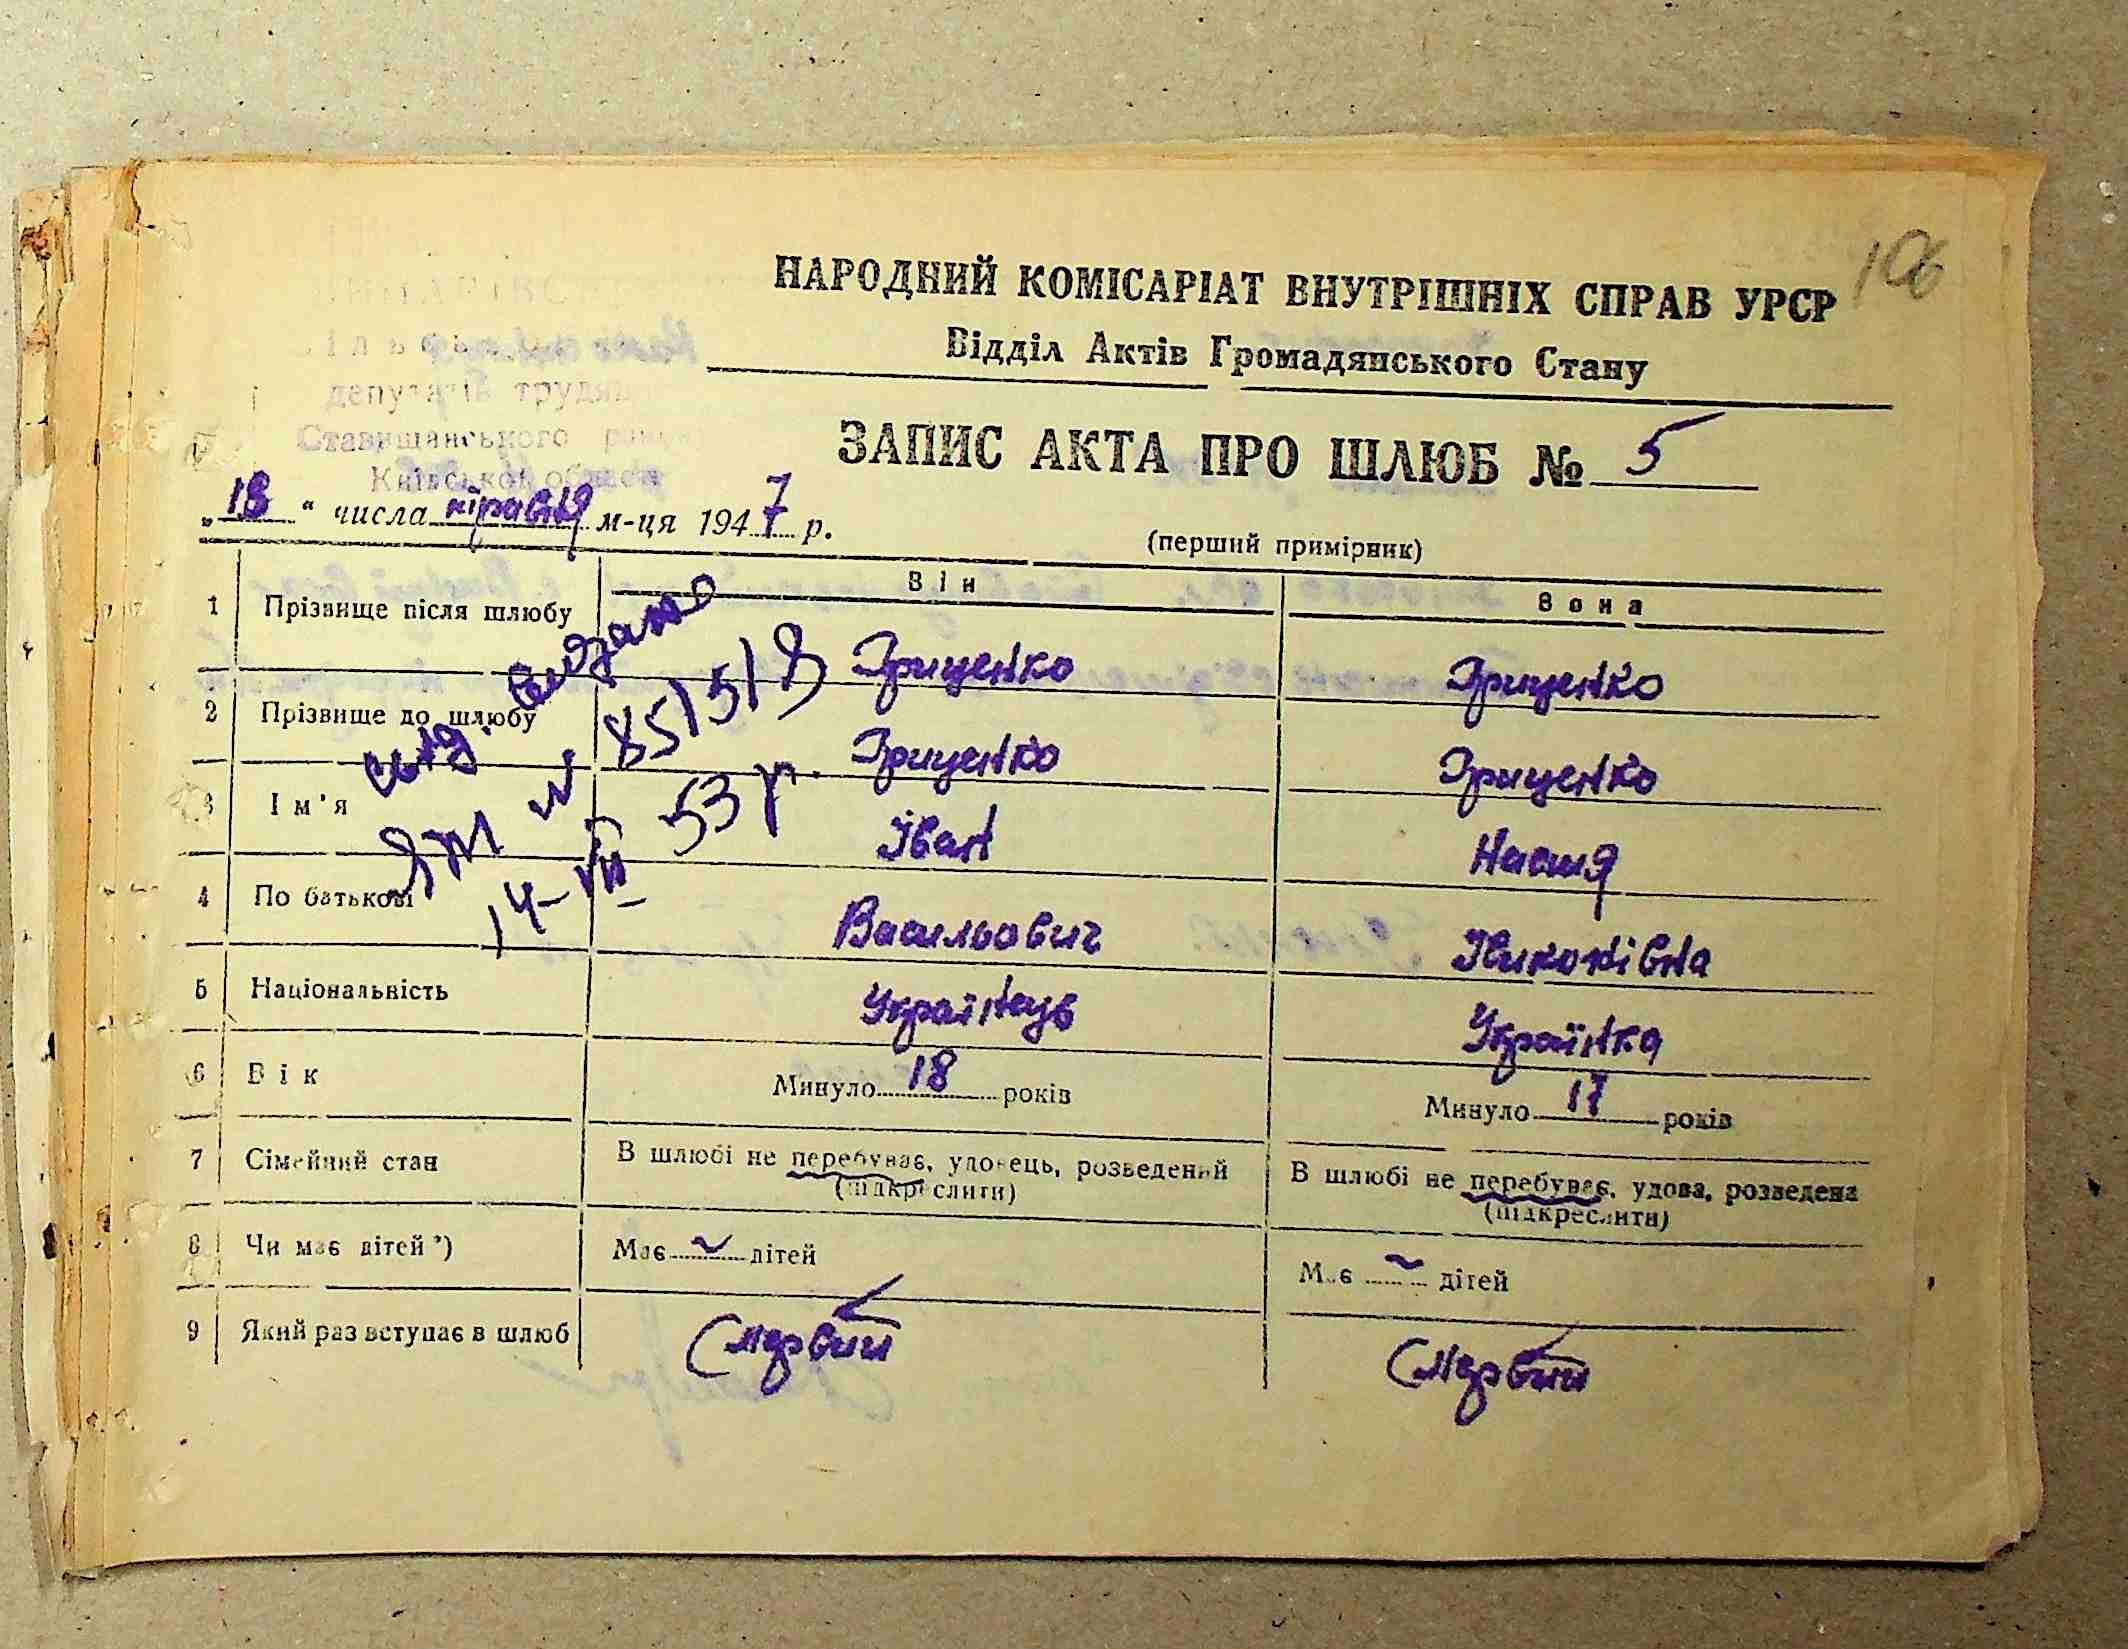 106
НАРОДНИЙ КОМІСАРІАТ ВНУТРІШНІХ СПРАВ УРСР
Відділ Актів Громадянського Стану
депутатів трудящ
Ставищанського району
Київської області
ЗАПИС АКТА ПРО ШЛЮБ № 5
„18“ числа м-ця 1947 р.
(перший примірник)
Він Вона
1 Прізвище після шлюбу Грищенко Грищенко
2 Прізвище до шлюбу Грищенко Грищенко
3 Ім'я Іван Настя
4 По батькові Васильович
5 Національність Українець Українка
6 Вік Минуло 18 років Минуло 17 років
7 Сімейний стан В шлюбі не перебуває, удовець, розведений В шлюбі не перебуває, удова, розведена
(підкреслити) (підкреслити)
8 Чи має дітей*) Має ~ дітей Має ~ дітей
9 Який раз вступає в шлюб Первий Первий
свід. видано
ЯТ № 851518
14-VII 53 р.